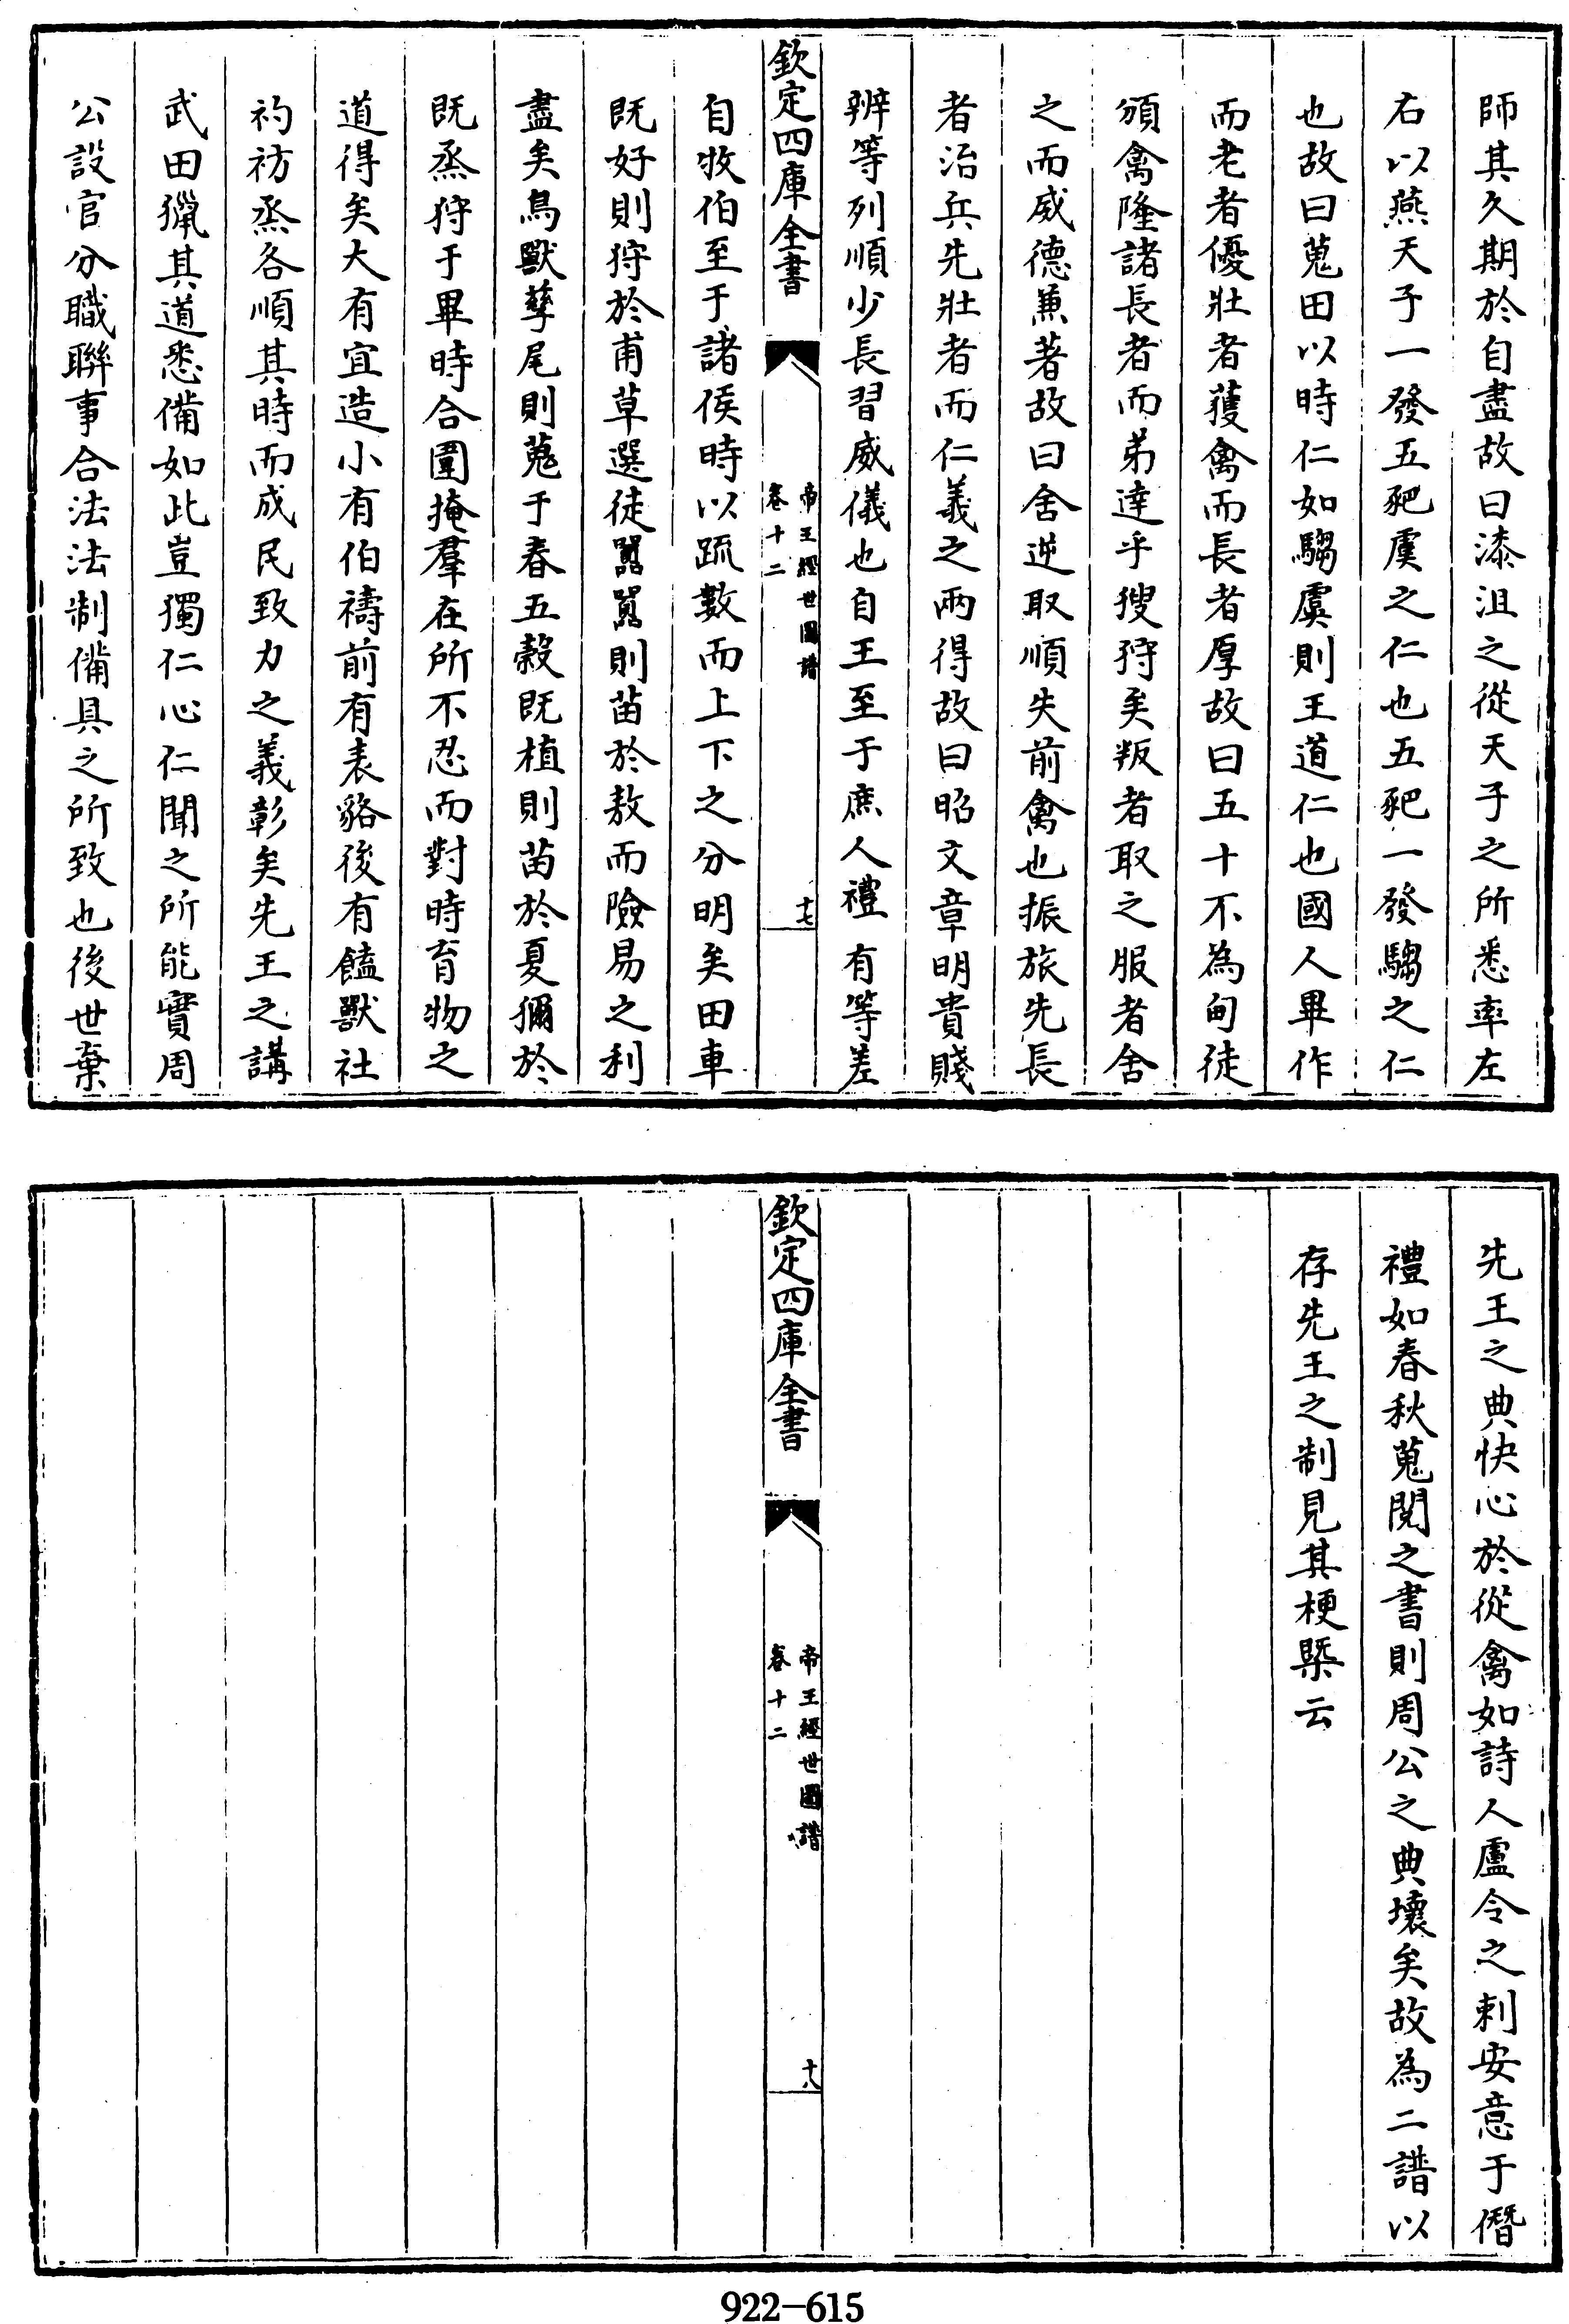 師其久期於自盡故曰漆沮之從天子之所悉率左
右以燕天子一發五豝虞之仁也五豝一發騶之仁
也故曰蒐田以時仁如騶虞則王道仁也國人畢作
而老者優壯者獲禽而長者厚故曰五十不為甸徒
頒禽隆諸長者而弟達乎獀狩矣叛者取之服者舍
之而威德兼著故曰舍逆取順失前禽也振旅先長
者治兵先壯者而仁義之兩得故曰昭文章明貴賤
辨等列順少長習威儀也自王至于庶人禮有等差
欽定四庫全書
帝王經世圖譜
卷十二
十七
自牧伯至于諸侯時以疏數而上下之分明矣田車
既好則狩於甫草選徒囂囂則苗於敖而險易之利
盡矣鳥獸孳尾則蒐于春五穀既植則苗於夏獮於
既烝狩于畢時合圍掩羣在所不忍而對時育物之
道得矣大有宜造小有伯禱前有表貉後有饁獸社
礿祊烝各順其時而成民致力之義彰矣先王之講
武田獵其道悉備如此豈獨仁心仁聞之所能實周
公設官分職聯事合法法制備具之所致也後世棄
先王之典快心於從禽如詩人盧令之刺安意于僭
禮如春秋蒐閱之書則周公之典壞矣故為二譜以
存先王之制見其梗槩云
欽定四庫全書
帝王經世圖譜
卷十二
十八
922-615